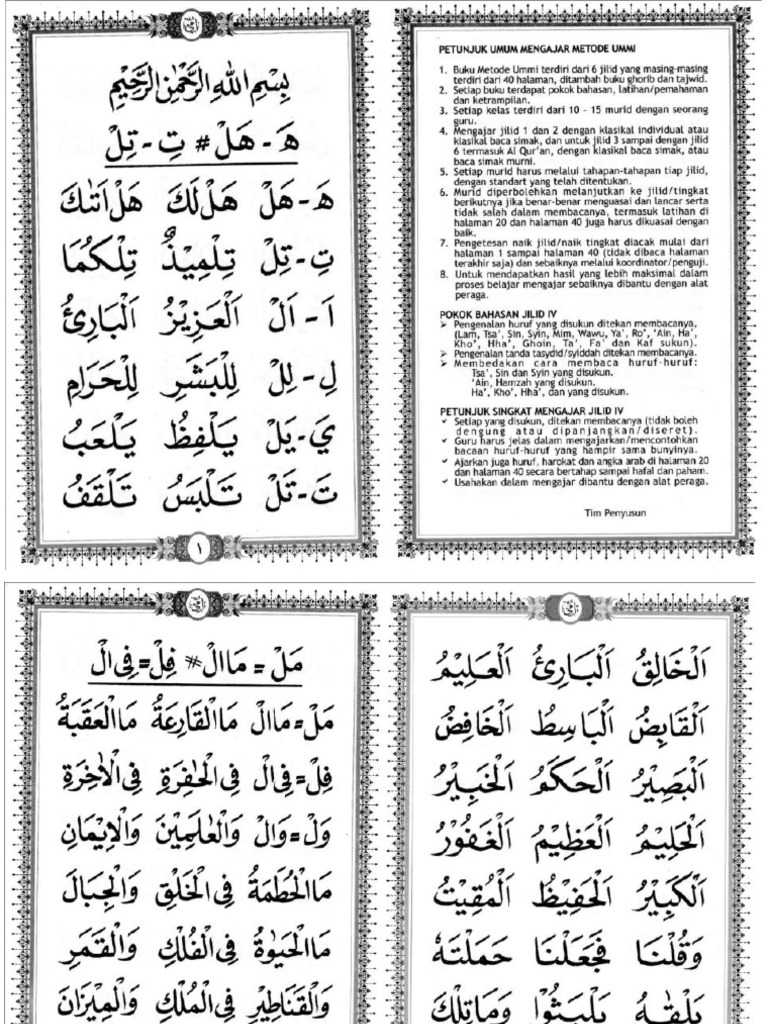 PETUNJUK UMUM MENGAJAR METODE UMMI
1. Buku Metode Ummi terdiri dari 6 jilid yang masing-masing
terdiri dari 40 halaman, ditambah buku ghorib dan tajwid.
2. Setiap buku terdapat pokok bahasan, latihan/pemahaman
dan ketrampilan.
3. Setiap kelas terdiri dari 10 - 15 murid dengan seorang
guru.
4. Mengajar jilid 1 dan 2 dengan klasikal individual atau
klasikal baca simak, dan untuk jilid 3 sampai dengan jilid
6 termasuk Al Qur'an, dengan klasikal baca simak, atau
baca simak murni.
5. Setiap murid harus melalui tahapan-tahapan tiap jilid,
dengan standart yang telah ditentukan.
6. Murid diperbolehkan melanjutkan ke jilid/tingkat
berikutnya jika benar-benar menguasai dan lancar serta
tidak salah dalam membacanya, termasuk latihan di
halaman 20 dan halaman 40 juga harus dikuasai dengan
baik.
7. Pengetesan naik jilid/naik tingkat diacak mulai dari
halaman 1 sampai halaman 40 (tidak dibaca halaman
terakhir saja) dan sebaiknya melalui koordinator/penguji.
8. Untuk mendapatkan hasil yang lebih maksimal dalam
proses belajar mengajar sebaiknya dibantu dengan alat
peraga.
POKOK BAHASAN JILID IV
➢ Pengenalan huruf yang disukun ditekan membacanya,
(Lam, Tsa', Sin, Syin, Mim, Wawu, Ya', Ro', 'Ain, Ha',
Kho', Hha', Ghoin, Ta', Fa' dan Kaf sukun).
➢ Pengenalan tanda tasydid/syiddah ditekan membacanya.
➢ Membedakan cara membaca huruf-huruf:
Tsa', Sin dan Syin yang disukun.
'Ain, Hamzah yang disukun.
Ha', Kho', Hha', dan yang disukun.
PETUNJUK SINGKAT MENGAJAR JILID IV
✓ Setiap yang disukun, ditekan membacanya (tidak boleh
dengung atau dipanjangkan/diseret).
✓ Guru harus jelas dalam mengajarkan/mencontohkan
bacaan huruf-huruf yang hampir sama bunyinya.
✓ Ajarkan juga huruf, harokat dan angka arab di halaman 20
dan halaman 40 secara bertahap sampai hafal dan paham.
✓ Usahakan dalam mengajar dibantu dengan alat peraga.
Tim Penyusun
بِسْمِ اللهِ الرَّحْمٰنِ الرَّحِيْمِ
هَـ - هَلْ # تِ - تِلْ
هَـ - هَلْ هَلْ لَكَ هَلْ اَتٰىكَ
تِ - تِلْ تِلْمِيْذٌ تِلْكُمَا
اَ - اَلْ اَلْعَزِيْزُ اَلْبَارِئُ
لِ - لِلْ لِلْبَشَرِ لِلْحَرَامِ
يَ - يَلْ يَلْفِظُ يَلْعَبُ
تَ - تَلْ تَلْبَسُ تَلْقَفُ
١
اَلْخَالِقُ اَلْبَارِئُ اَلْعَلِيْمُ
اَلْقَابِضُ اَلْبَاسِطُ اَلْخَافِضُ
اَلْبَصِيْرُ اَلْحَكَمُ اَلْخَبِيْرُ
اَلْحَلِيْمُ اَلْعَظِيْمُ اَلْغَفُوْرُ
اَلْكَبِيْرُ اَلْحَفِيْظُ اَلْمُقِيْتُ
وَقُلْنَا فَجَعَلْنَا حَمَلَتْهُ
يَلْقٰىهُ يَلْبَثُوْا وَمَاتِلْكَ
مَلْ = مَاالْ # فِلْ = فِى الْ
مَلْ = مَاالْ مَاالْقَارِعَةُ مَاالْعَقَبَةُ
فِلْ = فِى الْ فِى الْحَافِرَةِ فِى الْاٰخِرَةِ
وَلْ = وَالْ وَالْعٰلَمِيْنَ وَالْاِيْمَانِ
مَاالْحُطَمَةُ فِى الْخَلْقِ وَالْجِبَالَ
مَاالْحَيٰوةُ فِى الْفُلْكِ وَالْقَمَرِ
وَالْقَنَاطِيْرِ فِى الْمُلْكِ وَالْمِيْزَانَ